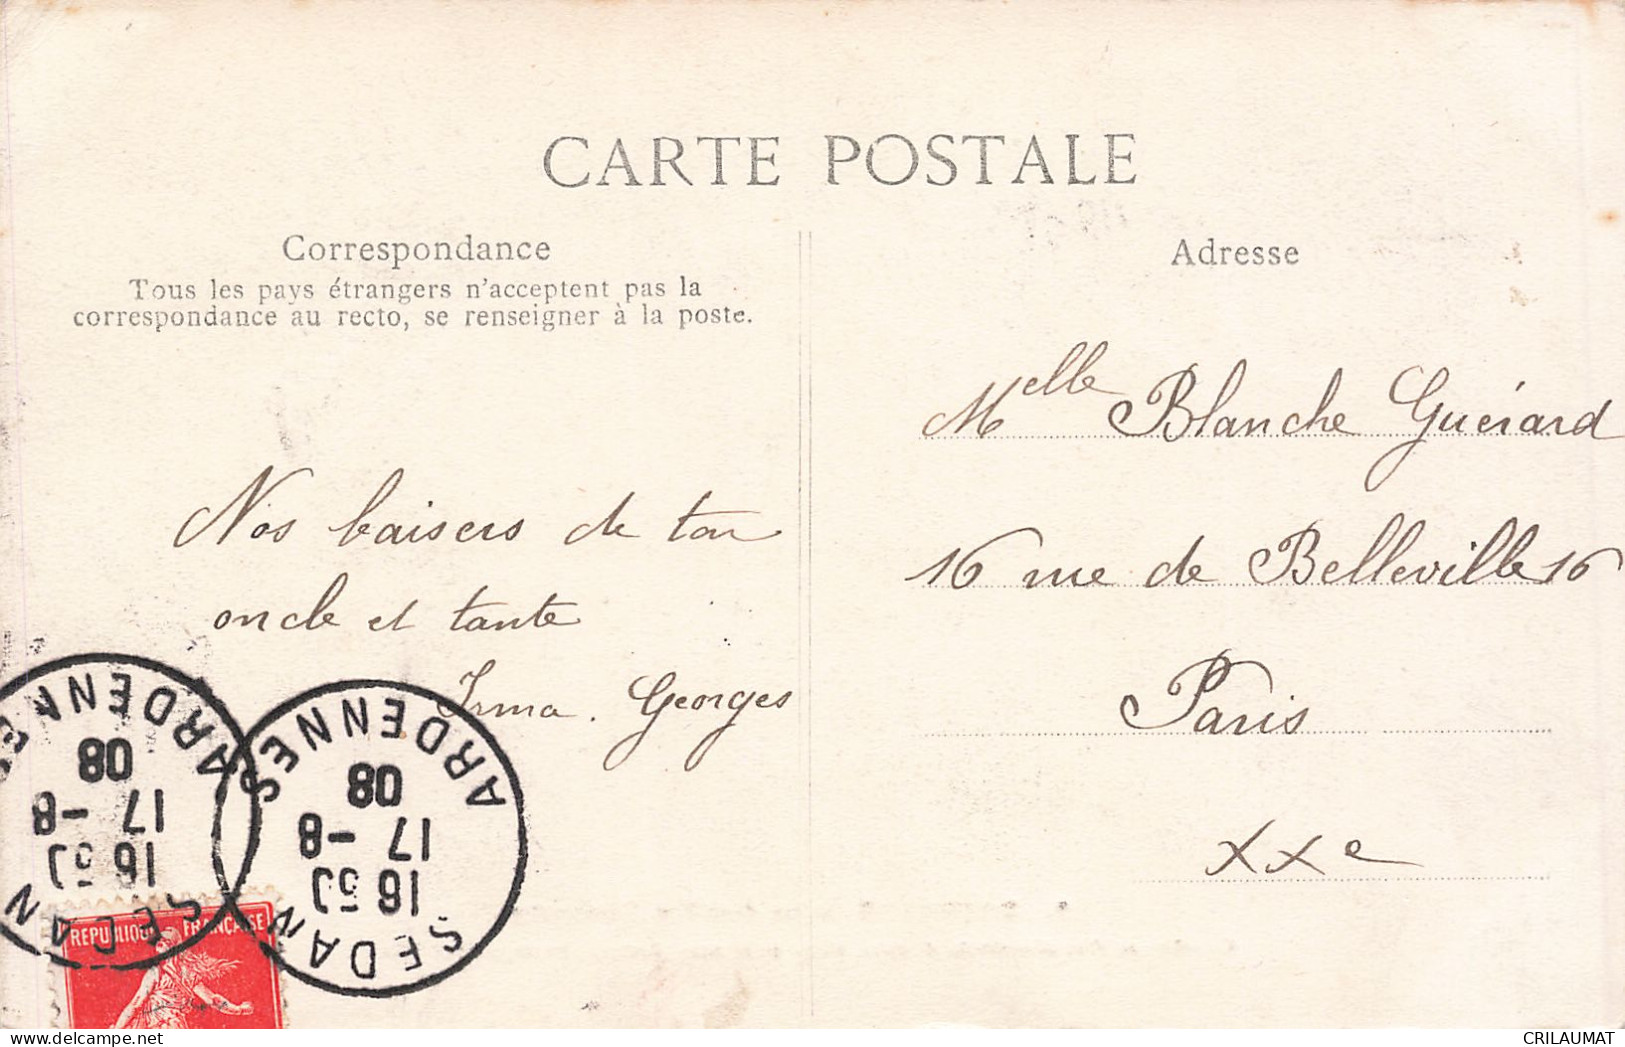 CARTE POSTALE
Correspondance
Tous les pays étrangers n'acceptent pas la
correspondance au recto, se renseigner à la poste.
Nos baisers de ton
oncle et tante
Irma. Georges
Adresse
Melle Blanche Guérard
16 rue de Belleville 16
Paris
XXe
SEDAN
16 50
17 -8
08
ARDENNES
SEDAN
16 50
17 -8
08
ARDENNES
REPUBLIQUE FRANÇAISE
CRILAUMAT